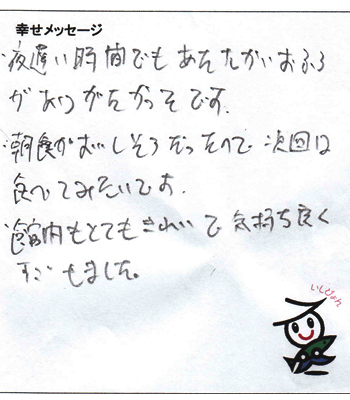 幸せメッセージ
・夜遅い時間でもあたたかいおふろ
がありがたかったです。
・朝食がおいしそうだったので次回は
食べてみたいです。
・館内もとてもきれいで気持ち良く
すごしました。